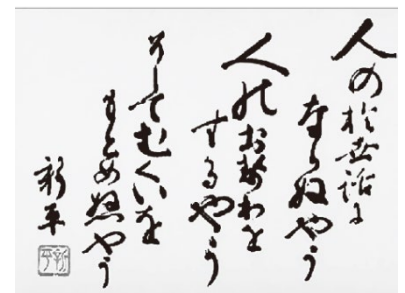 人のお世話に
ならぬやう
人のお世わを
するやう
そしてむくいを
もとめぬやう
新平
新平